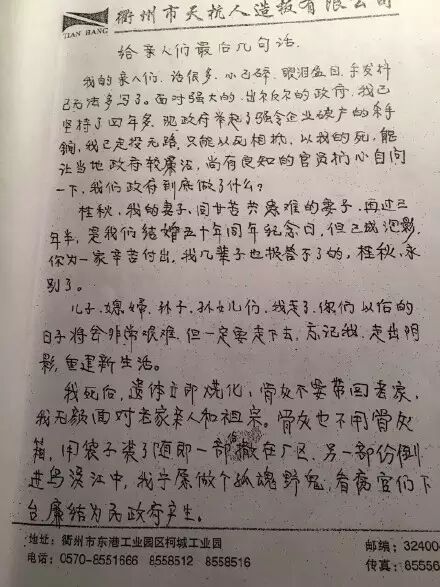 衢州市天杭人造板有限公司
TIAN HANG
给亲人们最后几句话.
我的亲人们.话很多.心已碎.眼泪盈目.手发抖
已无法多写了。面对强大的.出尔反尔的政府,我已
坚持了四年多.现政府举起了强令企业破产的杀手
锏,我已走投无路.只能以死相抵.以我的死,能
让当地政府较廉洁,尚有良知的官员扪心自问
一下,我们政府到底做了什么?
桂秋.我的妻子.同甘苦共患难的妻子.再过三
年半,是我们结婚五十年周年纪念日,但已成泡影,
你为一家辛苦付出,我几辈子也报答不了的,桂秋,永
别了。
儿子.媳妇.孙子.孙女儿们.我走了.你们以后的
日子将会非常艰难.但一定要走下去.忘记我.走出阴
影,重建新生活。
我死后,遗体立即烧化,骨灰不要带回老家,
我无颜面对老家亲人和祖宗。骨灰也不用骨灰
箱,用袋子装了随即一部份撒在厂区.另一部份倒
进乌溪江中,我宁愿做个孤魂野鬼,看腐官们下
台.廉洁为民政府产生。
地址:衢州市东港工业园区柯城工业园
邮编:32400
电话:0570-8551666 8558512 8558516
传真:85556